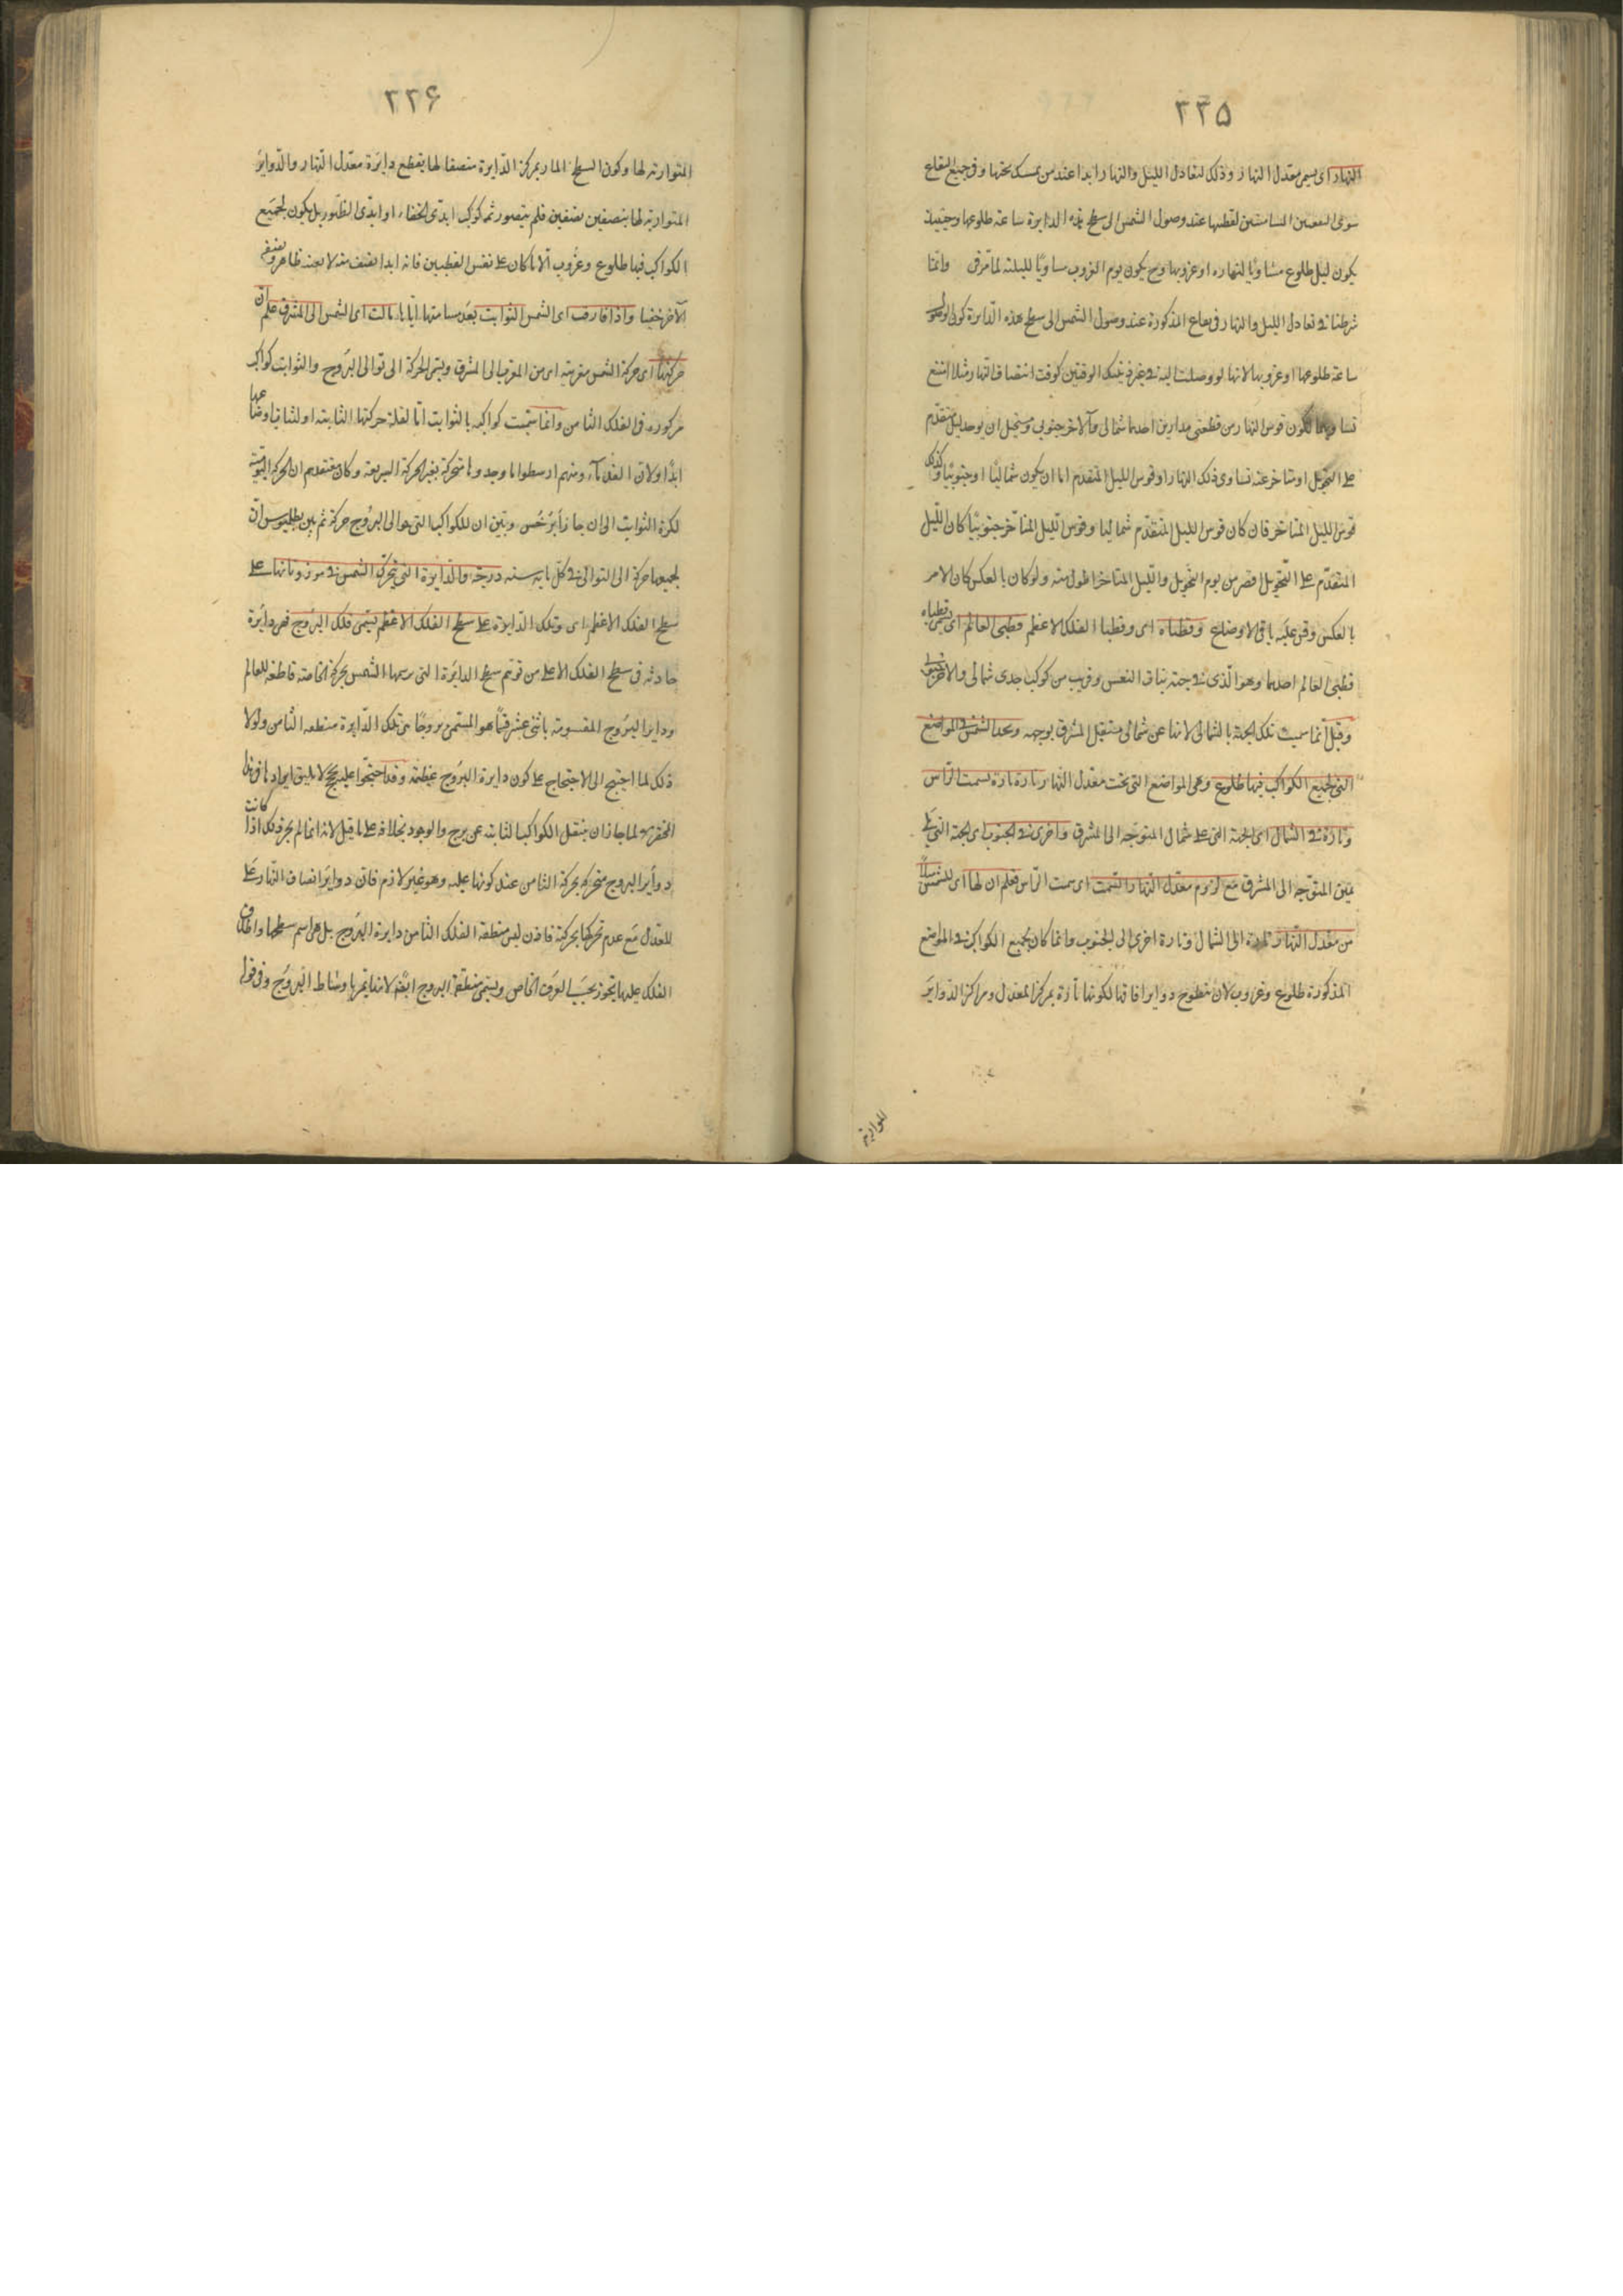 ٢٣٥
النهار اى يسمى معدل النهار وذلك لتعادل الليل والنهار ابدا عند من يسكن تحتها وفى جميع البقاع
سوى البقعتين المسامتتين لقطبيها عند وصول الشمس الى سطح هذه الدايرة ساعة طلوعها وحينئذ
يكون ليل طلوع مساويا لنهاره او غروبها وح يكون يوم الغروب مساويا لليلته لما مر وانما
شرطنا فى تعادل الليل والنهار فى بقاع المذكورة عند وصول الشمس الى سطح هذه الدايرة كون الوصول
ساعة طلوعها او غروبها لانها لو وصلت اليه فى غير ذينك الوقتين كوقت انتصاف النهار مثلا امتنع
تساويهما لكون قوس النهار من قطعتى مدارين احدهما شمالى والآخر جنوبى ويستحيل ان يوجد ليل متقدم
على التحويل او متاخر عنه تساوى ذلك النهار او قوس الليل المتقدم اما ان يكون شماليا او جنوبيا وكذلك
قوس الليل المتاخر فان كان قوس الليل المتقدم شماليا وقوس الليل المتاخر جنوبيا كان الليل
المتقدم على التحويل اقصر من يوم التحويل والليل المتاخر اطول منه ولو كان بالعكس كان الامر
بالعكس وقس عليه باقى الاوضاع وقطباه اى وقطبا الفلك الاعظم قطبى العالم اى يسمى قطباه
قطبى العالم احدهما وهو الذى فى جهة بنات النعش وقريب من كوكب جدى شمالى والاخر جنوبى
وقيل انما سميت تلك الجهة بالشمالى لانها عن شمالى مستقبل المشرق بوجهه وتجد الشمس فى المواضع
التى لجميع الكواكب فيها طلوع وهى المواضع التى تحت معدل النهار تارة تارة بسمت الراس
وتارة فى الشمال اى الجهة التى على شمال المتوجه الى المشرق واخرى فى الجنوب اى الجهة التى على
يمين المتوجه الى المشرق مع لزوم معدل النهار السمت اى سمت الراس فعلم ان لها اى للشمس ميلا
من معدل النهار تارة الى الشمال وتارة اخرى الى الجنوب وانما كان لجميع الكواكب فى المواضع
المذكورة طلوع وغروب لان سطوح دواير افاقها لكونها مارة بمركز المعدل ومراكز الدواير
للموازية
٢٢۶
المتوازية لها وكون السطح المار بمركز الدايرة منصفا لها يقطع دايرة معدل النهار والدواير
المتوازية لها بنصفين نصفين فلم يتصور ثمه كوكب ابدى الخفاء او ابدى الظهور بل يكون لجميع
الكواكب فيها طلوع وغروب الا ما كان على نفس القطبين فانه ابدا نصف منه لا بعينه ظاهر ونصفه
الآخر خفيا واذا فارقت اى الشمس الثوابت بعد مسامتتها اياها مالت اى الشمس الى المشرق علم ان
حركتها اى حركة الشمس مغربية اى من المغرب الى المشرق ويسمى الحركة الى توالى البروج والثوابت كواكب
مركوزة فى الفلك الثامن وانما سميت كواكبه بالثوابت اما لقلة حركتها الثانية او لثبات اوضاعها
ابدا ولان القدماء ومنهم ارسطو اما وجدوها متحركة بغير الحركة السريعة وكان معتقدهم ان الحركة اليومية
لكرة الثوابت الى ان جاء ابرخس وبين ان للكواكب التى حوالى البروج حركة ثم بين بطلميوس ان
لجميعها حركة الى التوالى فى كل ماية سنة درجة والدايرة التى تتحرك الشمس فى موازاتها على
سطح الفلك الاعظم اى وتلك الدايرة على سطح الفلك الاعظم تسمى فلك البروج فهى دايرة
حادثة فى سطح الفلك الاعلى من توهم سطح الدايرة التى رسمها الشمس بحركة الخاصة قاطعة للعالم
وداير البروج المقسومة باثنى عشر قسما هو المسمى بروجا هى تلك الدايرة منطقة الثامن ولولا
ذلك لما احتيج الى الاحتجاج على كون دايرة البروج عظيمة وقد احتجوا عليه بحجج لا يليق ايرادها فى هذا
المختصر ولما جاز ان ينتقل الكواكب الثابتة عن برج والوجود بخلافه على ما قيل لانه انما لم يجز ذلك اذا كانت
دواير البروج متحركة بحركة الثامن عند كونها عليه وهو غير لازم فان دواير انصاف النهار على
المعدل مع عدم تحركها بحركته فاذن ليس منطقة الفلك الثامن دايرة البروج بل هى اسم سطحها واطلاق
الفلك عليها بتجوز بحسب العرف الخاص ويسمى منطقة البروج ايضا لانها يمر باوساط البروج وفى قوله